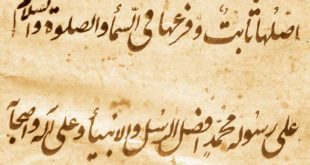 اصلها ثابت و فرعها فی السمأ والصلوة والسلام
علی رسوله محمد افضل الرسل والانبیأ و علی آله واصحآ